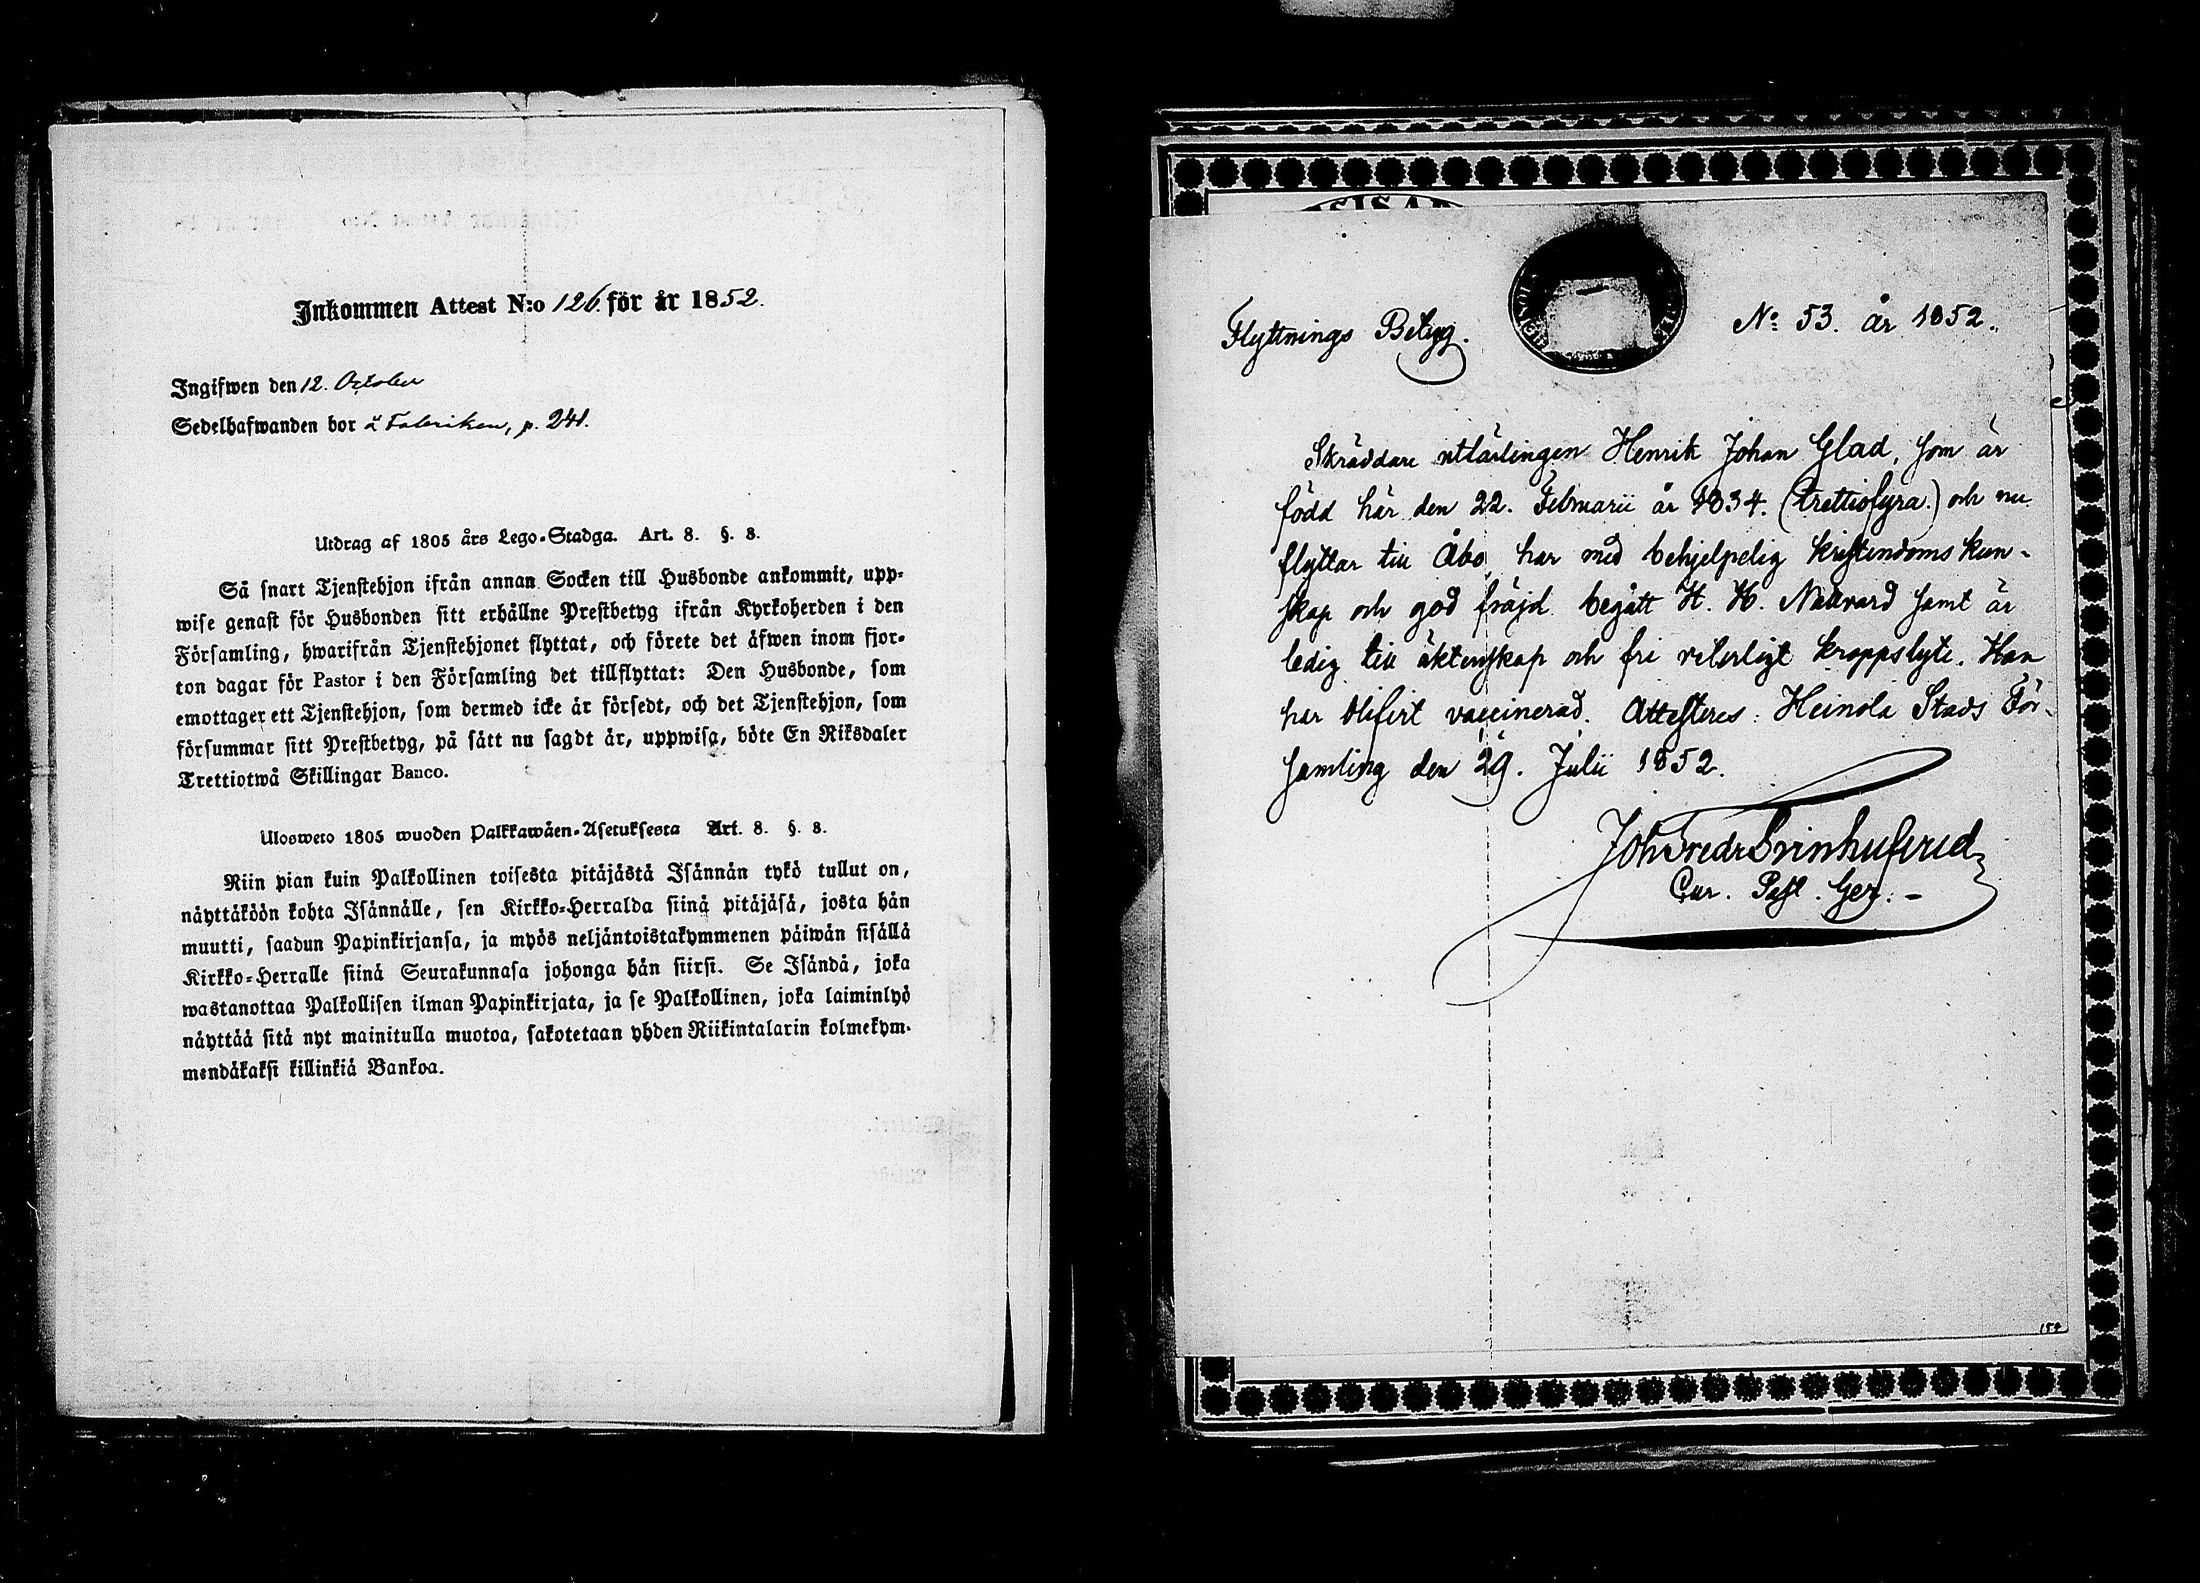 Inkommen Attest N:o 126. för år 1852.
Ingifwen den 12. October
Sedelhafwanden bor å Fabriken, p. 241.
Utdrag af 1805 års Lego-Stadga. Art. 8. §. 8.
Så snart Tjenstehjon ifrån annan Socken till Husbonde ankommit, upp-
wise genast för Husbonden sitt erhållne Prestbetyg ifrån Kyrkoherden i den
Församling, hwarifrån Tjenstehjonet flyttat, och förete det äfwen inom fjor-
ton dagar för Pastor i den Församling det tillflyttat: Den Husbonde, som
emottager ett Tjenstehjon, som dermed icke är försedt, och det Tjenstehjon, som
försummar sitt Prestbetyg, på sätt nu sagdt är, uppwisa, böte En Riksdaler
Trettiotwå Skillingar Banco.
Ulosweto 1805 wuoden Palkkawäen-Asetuksesta Art. 8. §. 8.
Niin pian kuin Palkollinen toisesta pitäjästä Isännän tykö tullut on,
näyttäköön kohta Isännälle, sen Kirkko-Herralda siinä pitäjäsä, josta hän
muutti, saadun Papinkirjansa, ja myös neljäntoistakymmenen päiwän sisällä
Kirkko-Herralle siinä Seurakunnasa johonga hän siirsi. Se Isändä, joka
wastanottaa Palkollisen ilman Papinkirjata, ja se Palkollinen, joka laiminlyö
näyttää sitä nyt mainitulla muotoa, sakotetaan yhden Riikintalarin kolmekym-
mendäkaksi killinkiä Bankoa.
Flyttnings Betyg. No 53. år 1852.
Skräddare utlärlingen Henrik Johan Glad, som är
född här den 22. Februarii år 1834. (trettiofyra.) och nu
flyttar till Åbo, har med behjelpelig kristendoms kun-
skap och god fräjd begått H. H. Nattvard samt är
ledig till äktenskap och fri veterligt kroppslyte. Han
har blifvit vaccinerad. Attesteres: Heinola Stads För-
samling den 29. Julii 1852.
Joh Fredr Svinhufvud
Cur. Past. Ger. -
154